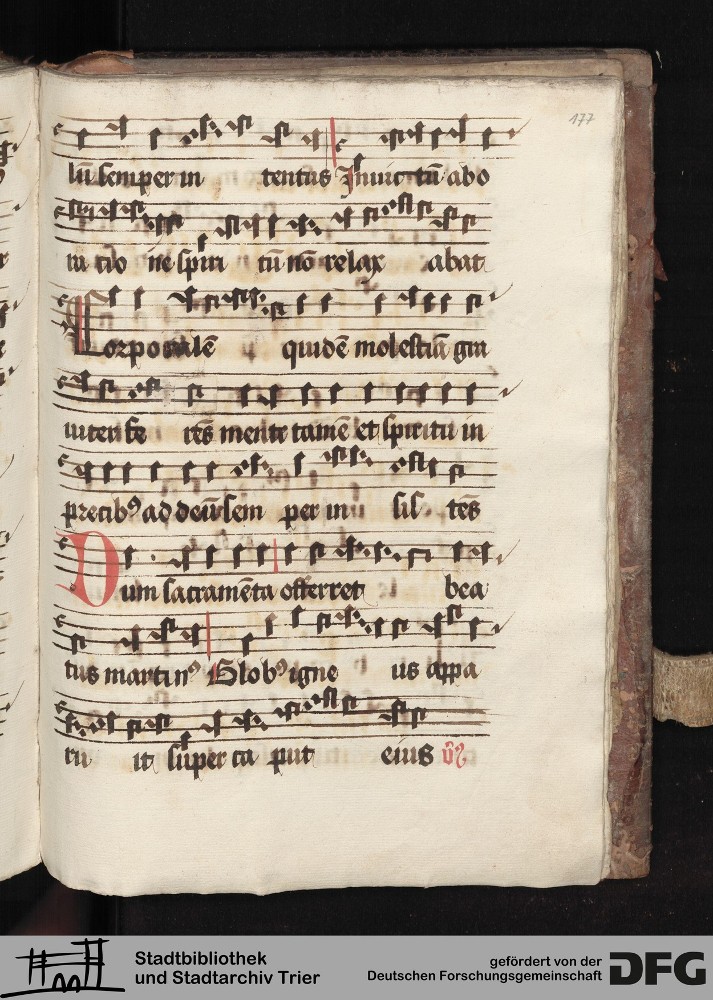 177
lū semper in tentus Inuic tū abo
ra tio ne spiri tū nō relax abat
Corporalē quidē molestiā gra
uiter fe rēs mente tamē et spiritu in
precibꝰ ad deū sem per in sis tēs
Dum sacramēta offerret bea
tus martinꝰ Globꝰ igne us appa
ru it super ca put eius
Stadtbibliothek
und Stadtarchiv Trier
gefördert von der
Deutschen Forschungsgemeinschaft
DFG